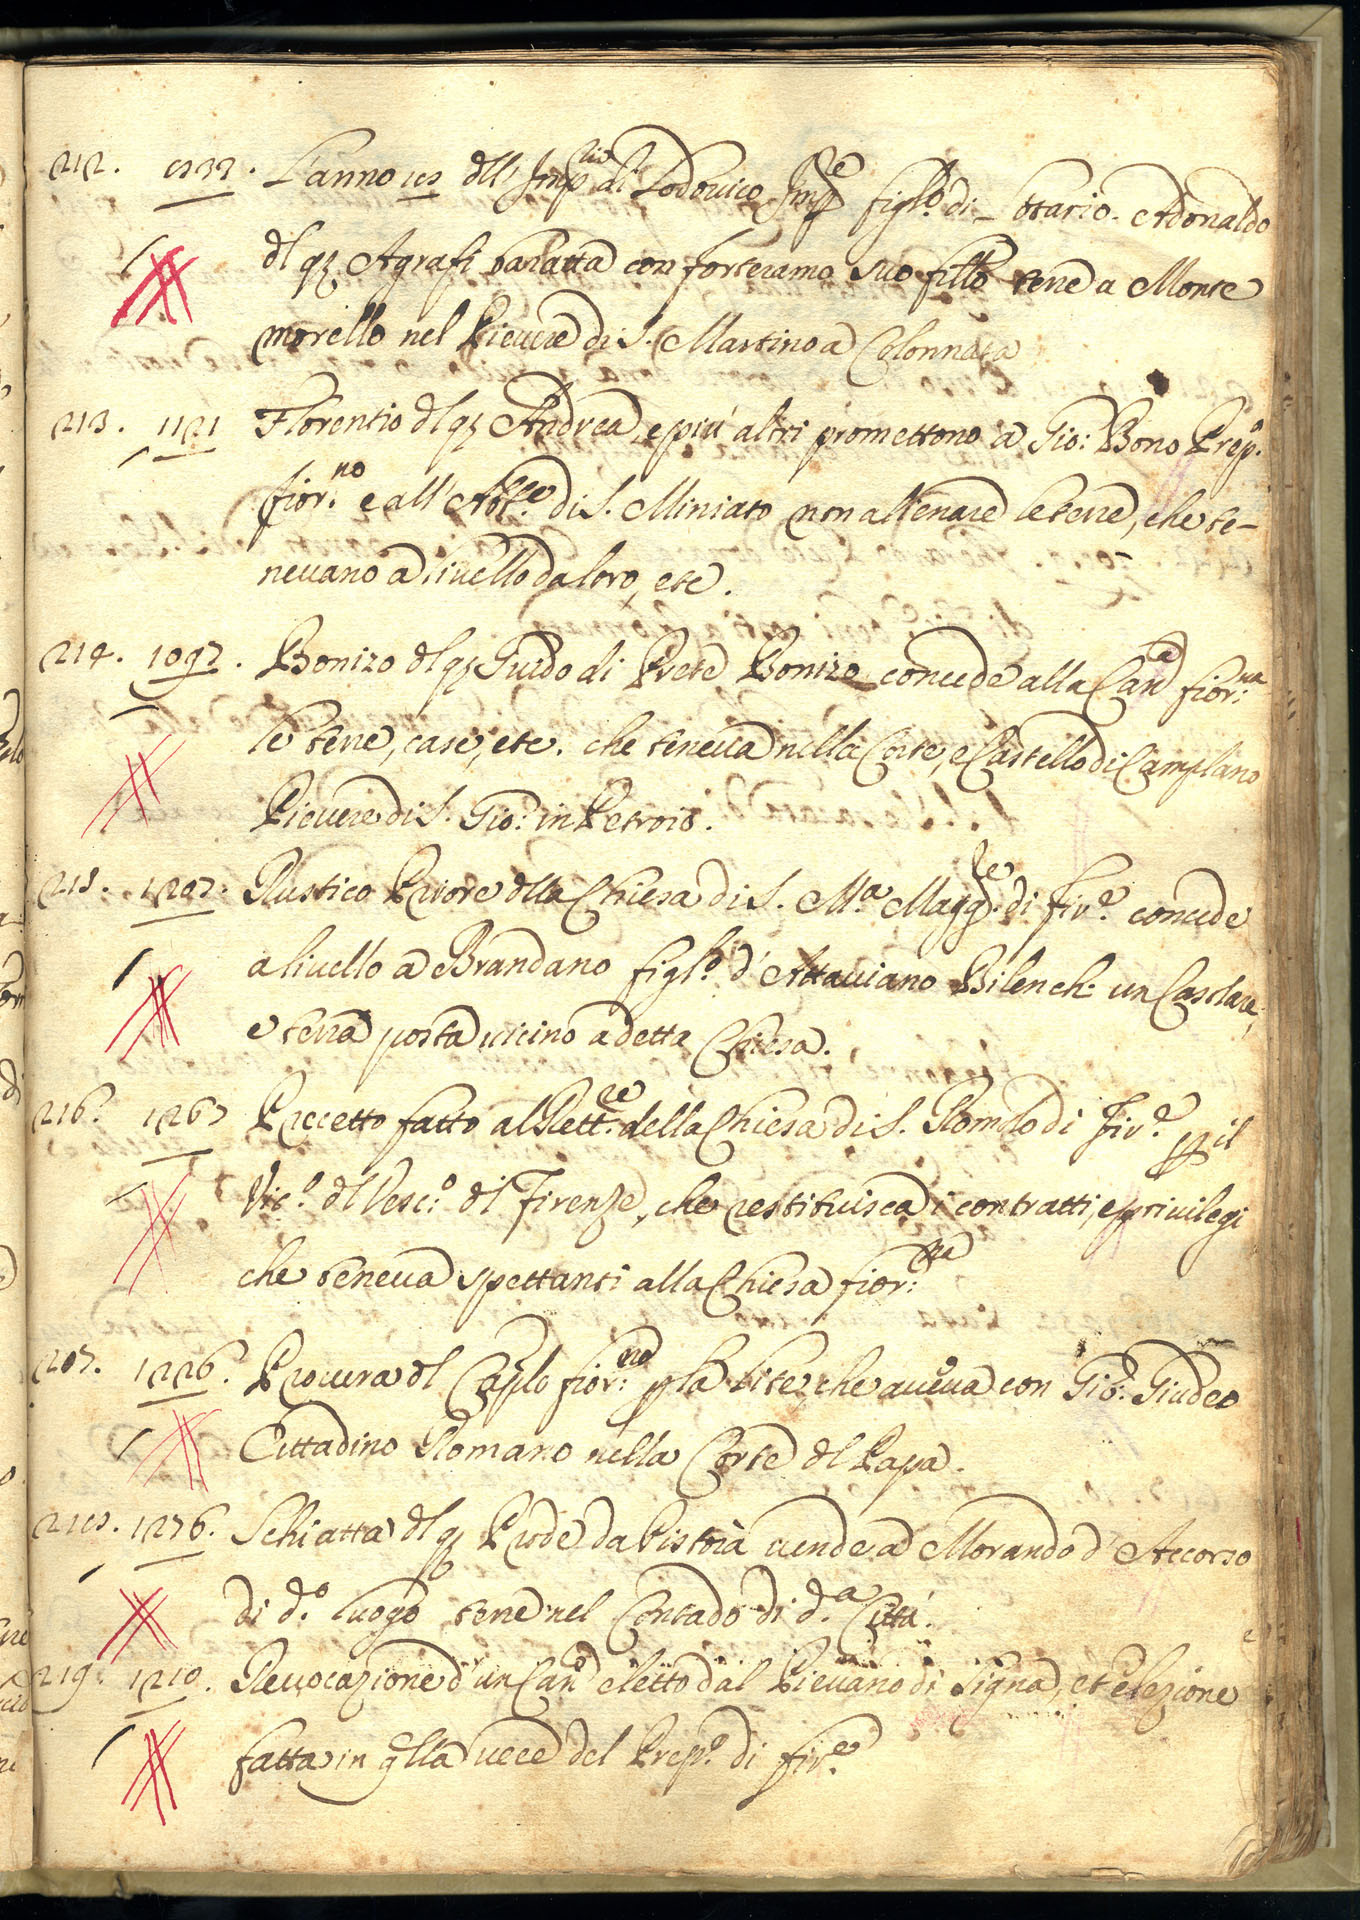 212. L'anno 18 dll' Imp.rio di Lodovico Imp.e figl.o di Lotario. Adonaldo
dl qz Agrafi baratta con forteramo suo fillo terre a Monte
morello nel Pievere di S. Martino a Colonnata
213. 1121 Florentio dl qz Andrea, e più altri promettono a Gio: Bono Prep.o
fior.no e all' Abb.e di S. Miniato non alienare le terre, che te-
nevano a livello da loro, etc.
214. 1092. Bonizo dl qz Guido di Prete Bonizo concede alla Can.a fior:na
le terre, case, etc. che teneva nella Corte, e Castello di Camplano
Pievere di S. Gio: in Petroio.
215. 1207. Rustico Priore dlla Chiesa di S. M.a Magg.re di Fir.e concede
a livello a Brandano figl.o d'Attaviano Bilench. un Casolare,
e terra posta vicino a detta Chiesa.
216. 1267 Precetto fatto al Rett.re della Chiesa di S. Romolo di Fir.e p il
Vic.o dl Vesc.o di Firenze, che restituisca i contratti, e privilegi
che teneva spettanti alla Chiesa fior:na
207. 1226. Procura dl Caplo fior:no p la lite, che aveva con Gio: Giudeo
Cittadino Romano nella Corte dl Papa.
218. 1276. Schiatta dl qz Prode da Pistoia vende a Morando d'Accorso
di d.o luogo terre nel Contado di d.a Città.
219. 1210. Revocazione d'un Can.o eletto dal Pievano di Signa, et elezione
fatta in qlla vece del Prep.o di fir.e